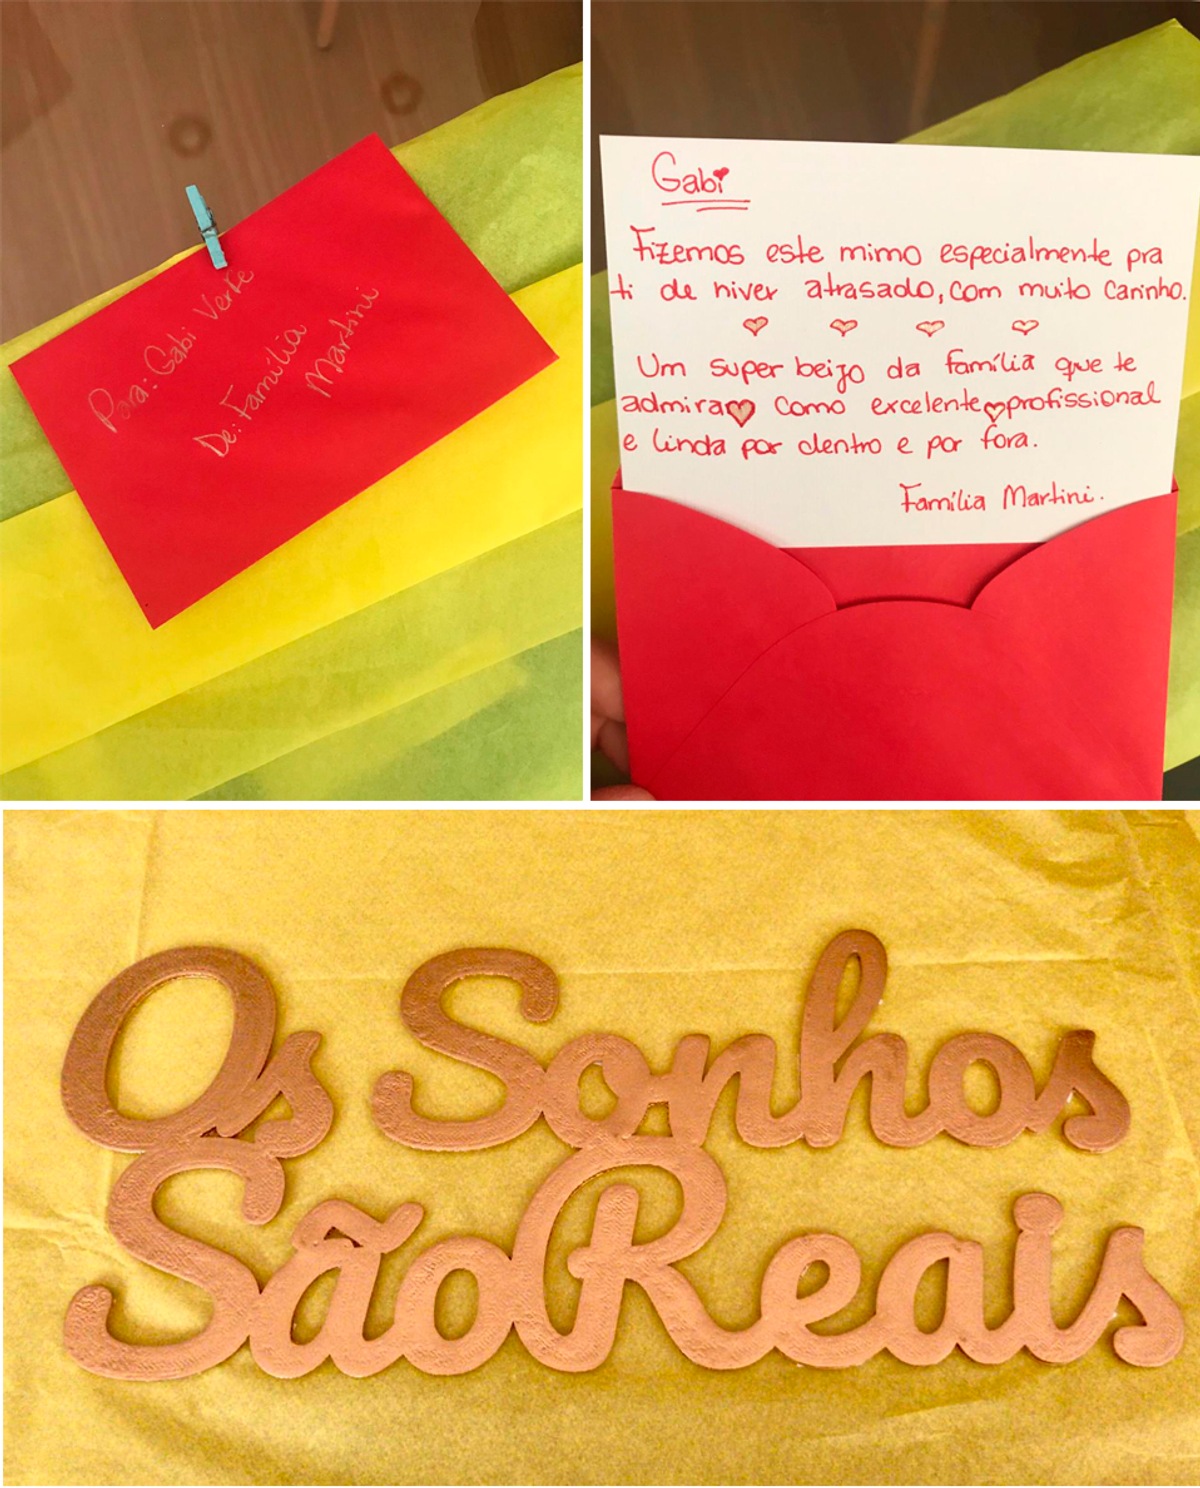 Para: Gabi Verfe
De: Família
Martini
Gabi
Fizemos este mimo especialmente pra
ti de niver atrasado, com muito carinho.
Um super beijo da família que te
admira como excelente profissional
e linda por dentro e por fora.
Família Martini.
Os Sonhos
São Reais